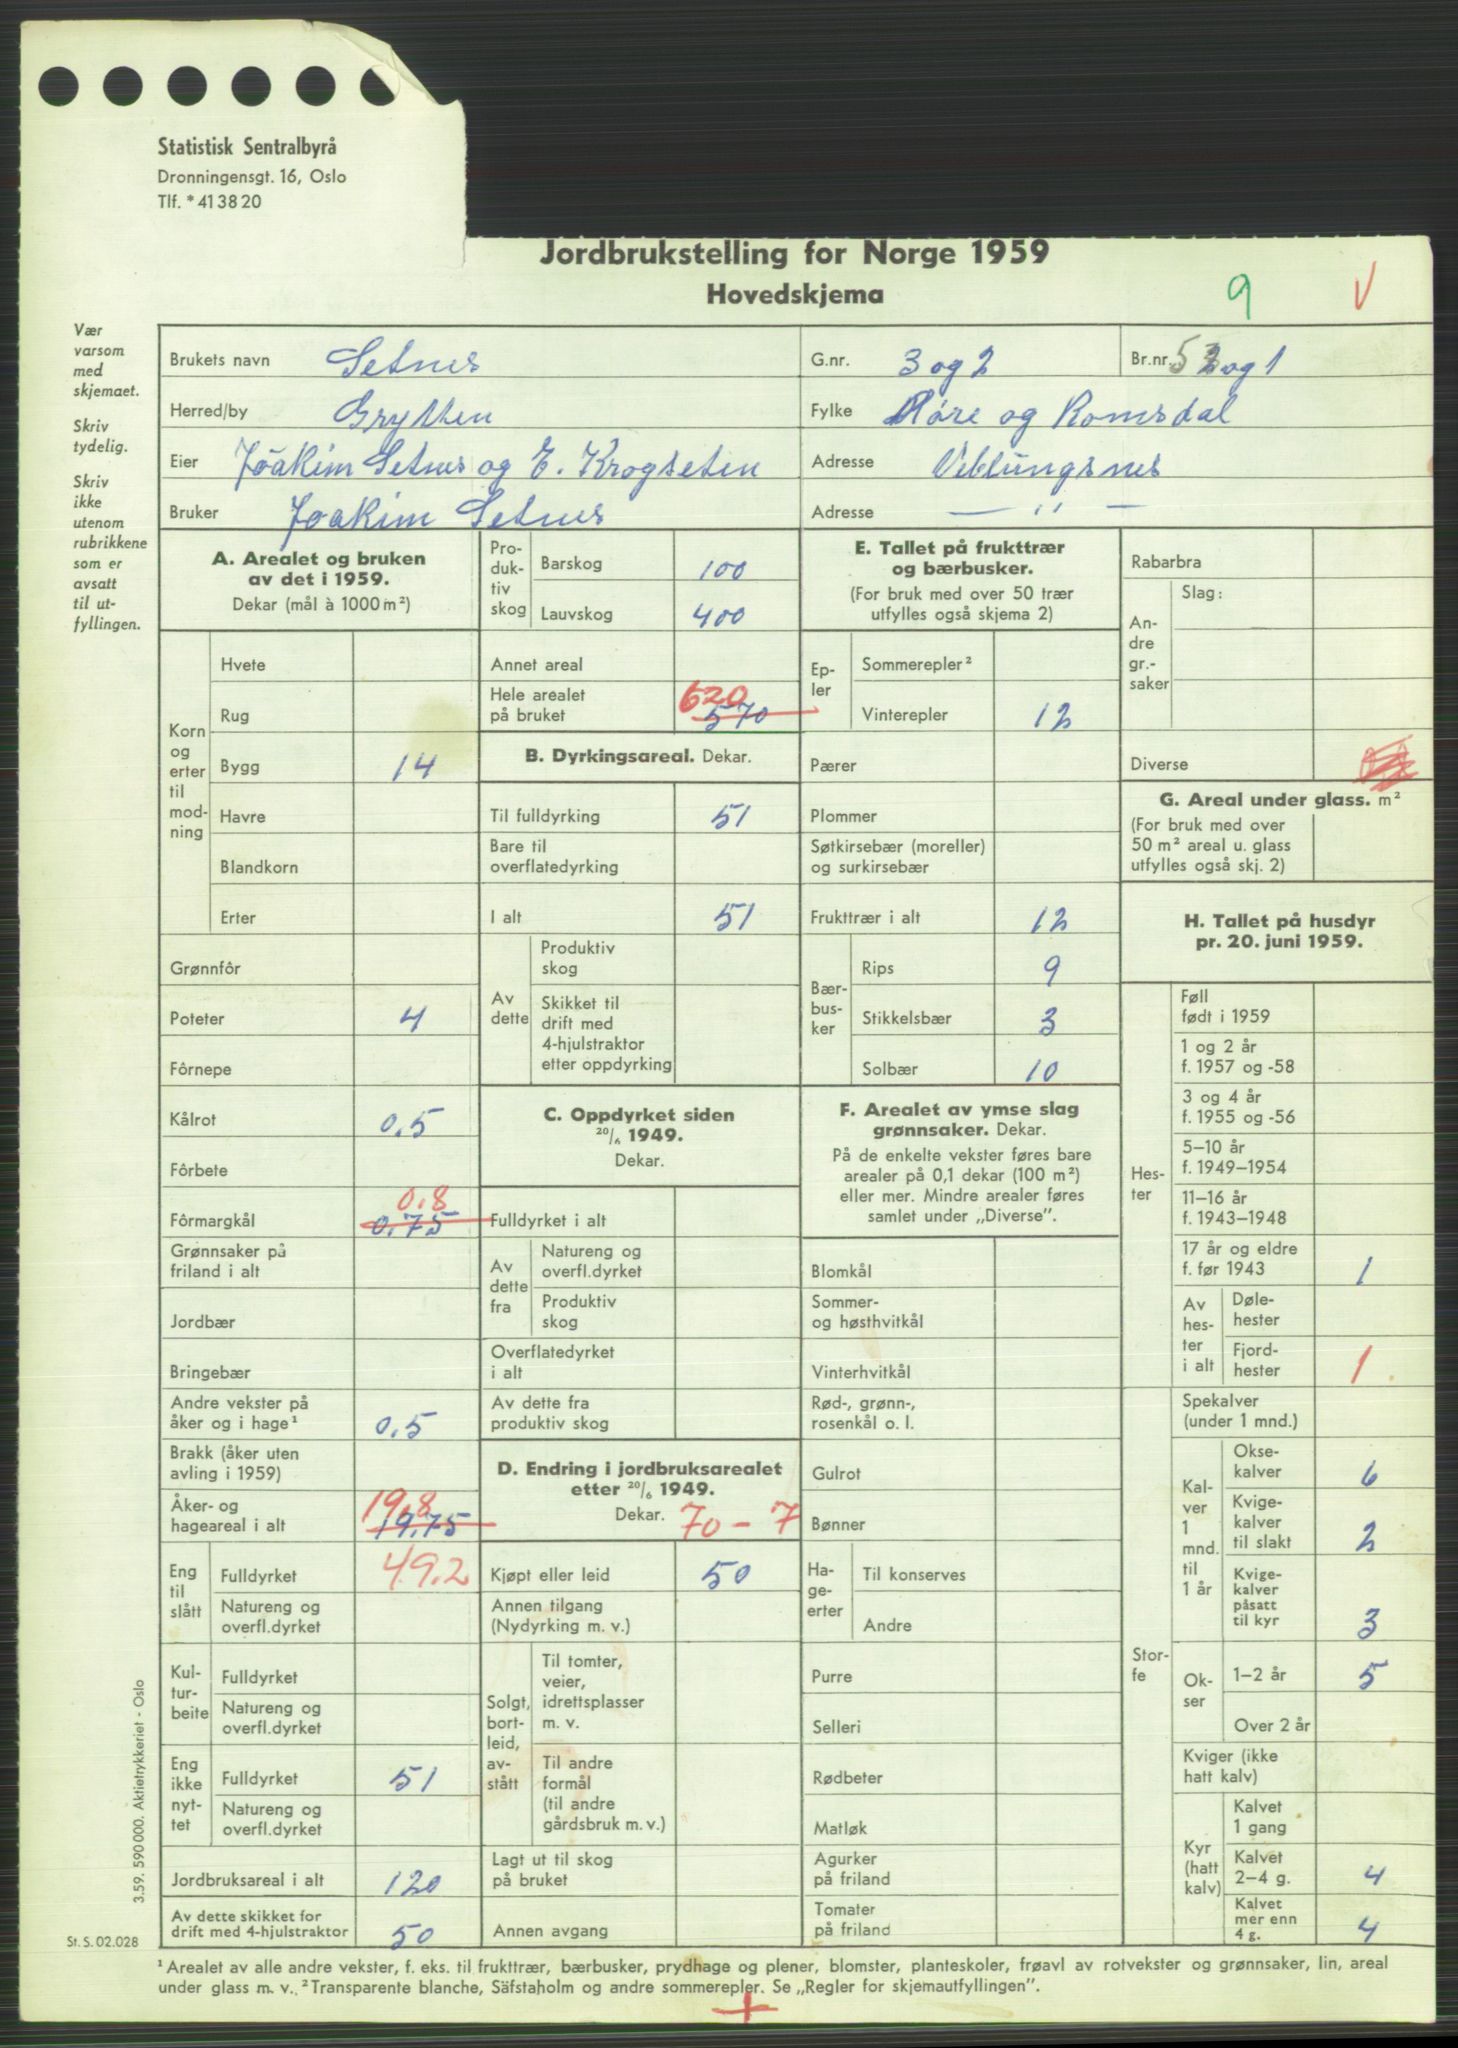 Statistisk Sentralbyrå
Dronningensgt. 16, Oslo
Tlf. * 41 38 20
Jordbrukstelling for Norge 1959
Hovedskjema
9 V
Vær
varsom
med
skjemaet.
Skriv
tydelig.
Skriv
ikke
utenom
rubrikkene
som er
avsatt
til ut-
fyllingen.
Brukets navn Setnes G.nr. 3 og 2 Br.nr. 5 og 1
Herred/by Grytten Fylke Møre og Romsdal
Eier Joakim Setnes og E. Krogseten Adresse Veblungsnes
Bruker Joakim Setnes Adresse — " —
A. Arealet og bruken
av det i 1959.
Dekar (mål à 1000 m²)
Korn
og
erter
til
mod-
ning
Hvete
Rug
Bygg 14
Havre
Blandkorn
Erter
Grønnfôr
Poteter 4
Fôrnepe
Kålrot 0.5
Fôrbete
0.8
Fôrmargkål 0.75
Grønnsaker på
friland i alt
Jordbær
Bringebær
Andre vekster på
åker og i hage¹ 0.5
Brakk (åker uten
avling i 1959)
Åker- og 19.8
hageareal i alt 19.75
Eng
til
slått
Fulldyrket 49.2
Natureng og
overfl.dyrket
Kul-
tur-
beite
Fulldyrket
Natureng og
overfl.dyrket
Eng
ikke
nyt-
tet
Fulldyrket 51
Natureng og
overfl.dyrket
Jordbruksareal i alt 120
Av dette skikket for
drift med 4-hjulstraktor 50
Pro-
duk-
tiv
skog
Barskog 100
Lauvskog 400
Annet areal
Hele arealet 620
på bruket 570
B. Dyrkingsareal. Dekar.
Til fulldyrking 51
Bare til
overflatedyrking
I alt 51
Av
dette
Produktiv
skog
Skikket til
drift med
4-hjulstraktor
etter oppdyrking
C. Oppdyrket siden
20/6 1949.
Dekar.
Fulldyrket i alt
Av
dette
fra
Natureng og
overfl.dyrket
Produktiv
skog
Overflatedyrket
i alt
Av dette fra
produktiv skog
D. Endring i jordbruksarealet
etter 20/6 1949.
Dekar. 70 - 7
Kjøpt eller leid 50
Annen tilgang
(Nydyrking m. v.)
Solgt,
bort-
leid,
av-
stått
Til tomter,
veier,
idrettsplasser
m. v.
Til andre
formål
(til andre
gårdsbruk m. v.)
Lagt ut til skog
på bruket
Annen avgang
E. Tallet på frukttrær
og bærbusker.
(For bruk med over 50 trær
utfylles også skjema 2)
Ep-
ler
Sommerepler²
Vinterepler 12
Pærer
Plommer
Søtkirsebær (moreller)
og surkirsebær
Frukttrær i alt 12
Bær-
bus-
ker
Rips 9
Stikkelsbær 3
Solbær 10
F. Arealet av ymse slag
grønnsaker. Dekar.
På de enkelte vekster føres bare
arealer på 0,1 dekar (100 m²)
eller mer. Mindre arealer føres
samlet under „Diverse”.
Blomkål
Sommer-
og høsthvitkål
Vinterhvitkål
Rød-, grønn-,
rosenkål o. l.
Gulrot
Bønner
Ha-
ge-
erter
Til konserves
Andre
Purre
Selleri
Rødbeter
Matløk
Agurker
på friland
Tomater
på friland
Rabarbra
An-
dre
gr.-
saker
Slag:
Diverse
G. Areal under glass. m²
(For bruk med over
50 m² areal u. glass
utfylles også skj. 2)
H. Tallet på husdyr
pr. 20. juni 1959.
Hes-
ter
Føll
født i 1959
1 og 2 år
f. 1957 og -58
3 og 4 år
f. 1955 og -56
5–10 år
f. 1949–1954
11–16 år
f. 1943–1948
17 år og eldre
f. før 1943 1
Av
hes-
ter
i alt
Døle-
hester
Fjord-
hester 1
Stor-
fe
Spekalver
(under 1 mnd.)
Kal-
ver
1
mnd.
til
1 år
Okse-
kalver 6
Kvige-
kalver
til slakt 2
Kvige-
kalver
påsatt
til kyr 3
Ok-
ser
1–2 år 5
Over 2 år
Kviger (ikke
hatt kalv)
Kyr
(hatt
kalv)
Kalvet
1 gang
Kalvet
2–4 g. 4
Kalvet
mer enn
4 g. 4
3.59. 590 000. Aktietrykkeriet - Oslo
St. S. 02.028
¹ Arealet av alle andre vekster, f. eks. til frukttrær, bærbusker, prydhage og plener, blomster, planteskoler, frøavl av rotvekster og grønnsaker, lin, areal
under glass m. v. ² Transparente blanche, Säfstaholm og andre sommerepler. Se „Regler for skjemautfyllingen”.
+